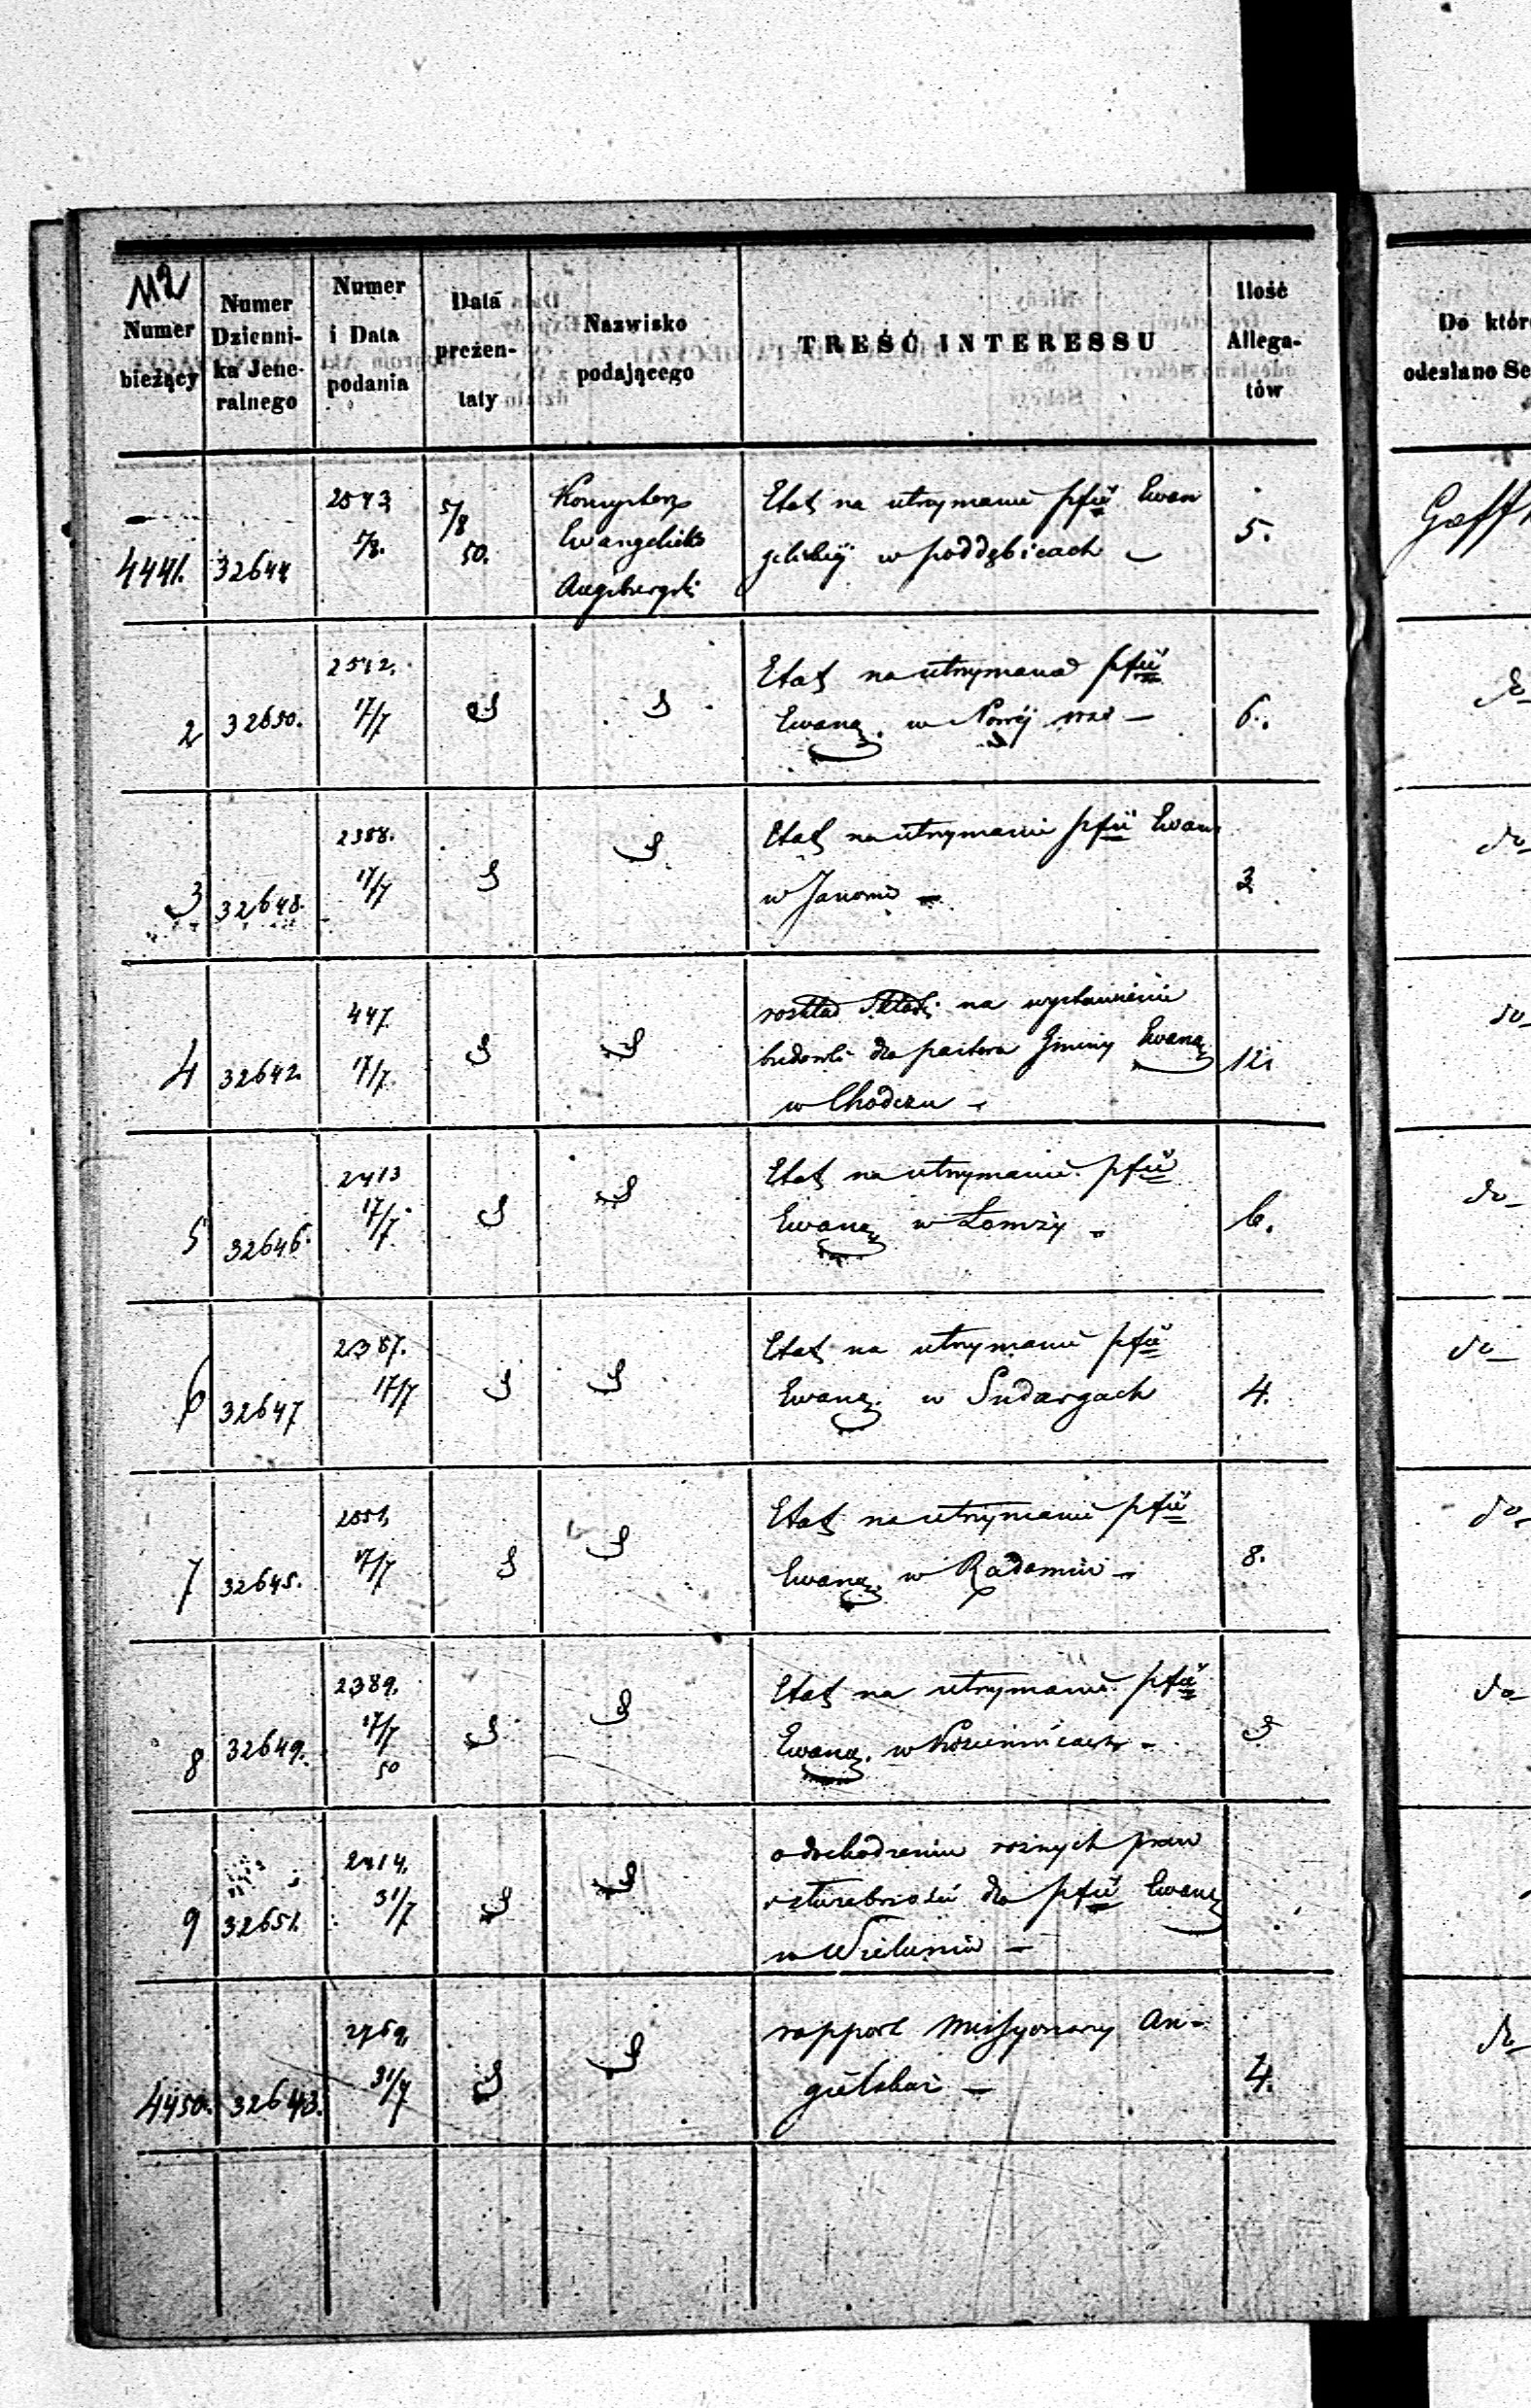 112
Numer bieżący | Numer Dzienni-ka Jene-ralnego | Numer i Data podania | Data prezen-taty | Nazwisko podającego | TREŚĆ INTERESSU | Ilość Allega-tów | Do któr odesłano Se
4441. | 32644 | 2543 5/8. | 5/8 50. | Konsystorz | Etat na utrzymanie pfii Ewan | 5.
Ewangelicko | gelickiej w poddębicach –
Augsburgski
2 | 32650. | 2512. 17/7 | Etat na utrzymanie pfii | 6. | do
Ewang. w Nowej wsi –
3 | 32648. | 2388. 17/7 | Etat na utrzymanie pfii Ewan | do
w Janowie –
4 | 32642. | 447. 17/7. | rozkład Składki na wystawienie | 12. | do
budowli dla pastora Gminy Ewang
w Chodczu –
5 | 32646. | 2413 17/7. | Etat na utrzymanie pfii | 6. | do
Ewang w Łomży –
6 | 32647 | 2387. 17/7 | Etat na utrzymanie pfii | 4. | do
Ewang. w Sudargach
7 | 32645. | 17/7 | Etat na utrzymanie pfii | 8. | do
Ewang. w Radomiu –
8 | 32649. | 2389. 17/7 50 | Etat na utrzymanie pfii | do
Ewang. w Kozienicach –
9 | 32651. | 2414. 31/7 | o dochodzeniu rożnych praw
dla pfii Ewang
w Wieluniu –
4450. | 32643. | 31/7 | rapport Missyonarzy An- | 4. | do
gielskai –